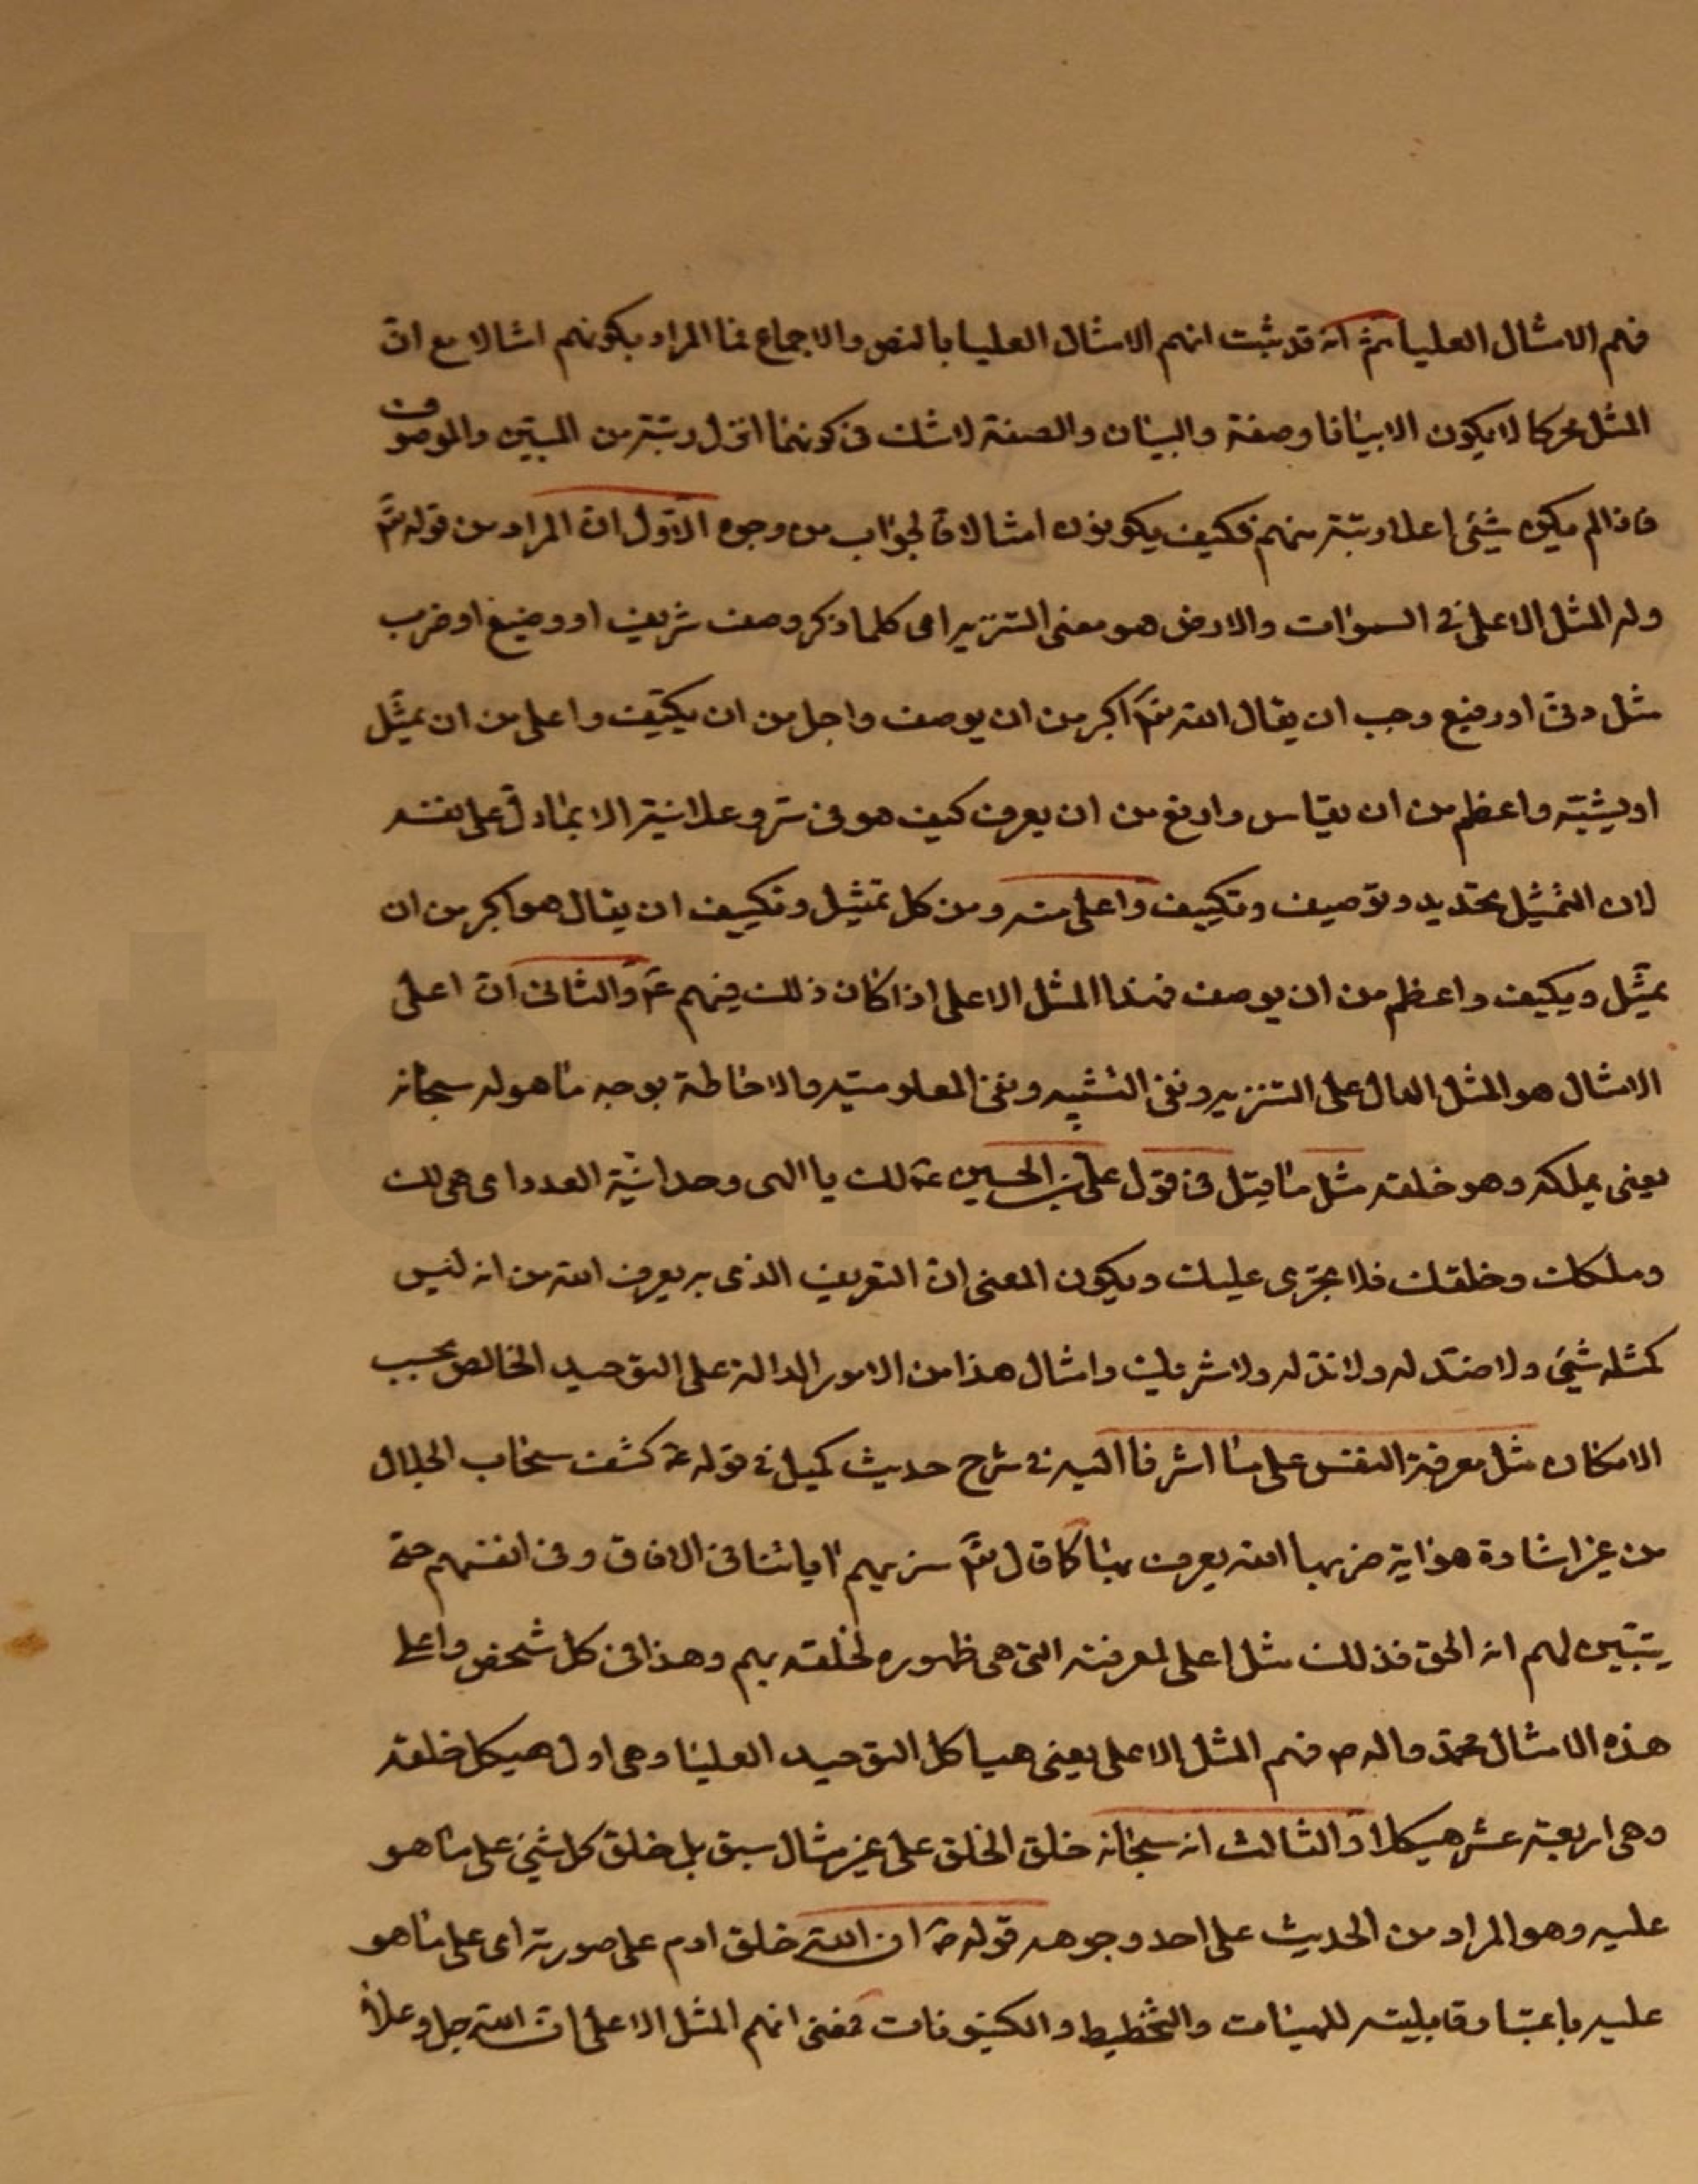 فهم الامثال العليا ثم انه قد ثبت انهم الامثال العليا بالنص والاجماع فما المراد بكونهم امثالا مع انّ
المثل محركا لا يكون الا بيانا وصفة والبيان والصفة لا شك فى كونهما انزل رتبة من المبيّن والموصوف
فاذا لم يكن شيئ اعلا رتبة منهم فكيف يكونون امثالا فالجواب من وجوه الاوّل انّ المراد من قوله تعّ
وله المثل الاعلى فى السموات والارض هو معنى التنزيه اى كلما ذكر وصف شريف او وضيع او ضرب
مثل دنىّ او رفيع وجب ان يقال الله تعّ اكبر من ان يوصف واجل من ان يكيّف واعلى من ان يمثّل
او يشبّه واعظم من ان يقاس وارفع من ان يعرف كيف هو فى سرّ وعلانية الا بما دلّ على نفسه
لان التمثيل تحديد وتوصيف وتكييف واعلى منه ومن كل تمثيل وتكييف ان يقال هو اكبر من ان
يمثّل ويكيف واعظم من ان يوصف فهذا المثل الاعلى اذا كان ذلك فيهم عۤ والثانى انّ اعلى
الامثال هو المثل الدال على التنزيه ونفى التشبيه ونفى المعلوميّه والاحاطة بوجه ما هو له سبحانه
يعنى يملكه وهو خلقه مثل ما قيل فى قول على بن الحسين عۤ لك يا الهى وحدانيّة العدد اى هى لك
وملكك وخلقك فلا تجرى عليك ويكون المعنى انّ التعريف الذى به يعرف الله من انه ليس
كمثله شيئ ولا ضدّ له ولا ندّ له ولا شريك وامثال هذا من الامور الدالة على التوحيد الخالص بحسب
الامكان مثل معرفة النفس على ما اشرنا اليه فى شرح حديث كميل فى قوله عۤ كشف سبحات الجلال
من غير اشارة هو اية ضربها الله يعرف بها كما قال تعّ سنريهم اياتنا فى الافاق وفى انفسهم حتى
يتبيّن لهم انه الحق فذلك مثل اعلى لمعرفته التى هى ظهوره لخلقه بهم وهذا فى كل شخص واعلى
هذه الامثال محمّد واله ص فهم المثل الاعلى يعنى هياكل التوحيد العليا وهى اول هيكل خلقه
وهى اربعة عشر هيكلا والثالث انه سبحانه خلق الخلق على غير مثال سبق بل خلق كل شيئ على ما هو
عليه وهو المراد من الحديث على احد وجوهه قوله صۤ ان الله خلق ادم على صورته اى على ما هو
عليه باعتبار قابليته للهيئات والتخطيط والكينونات فمعنى انهم المثل الاعلى ان الله جل وعلا